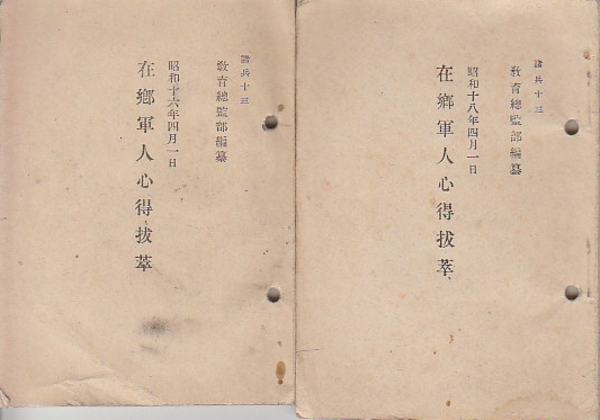 諸兵十三
教育總監部編纂
昭和十八年四月一日
在鄕軍人心得拔萃
諸兵十三
教育總監部編纂
昭和十六年四月一日
在鄕軍人心得拔萃